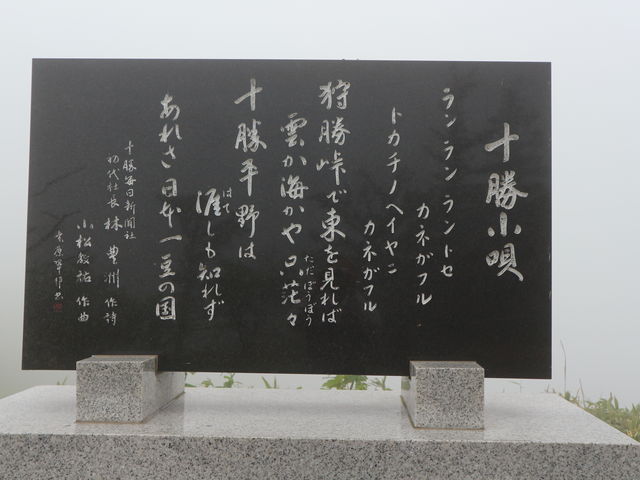 十勝小唄
ラン ラン ラントセ
カネがフル
トカチノヘイヤニ
カネがフル
狩勝峠で東を見れば
雲か海かや只茫々
ただぼうぼう
十勝平野は
涯しも知れず
はて
あれさ日本一豆の国
十勝毎日新聞社
初代社長 林 豊洲 作詩
小松 祐 作曲